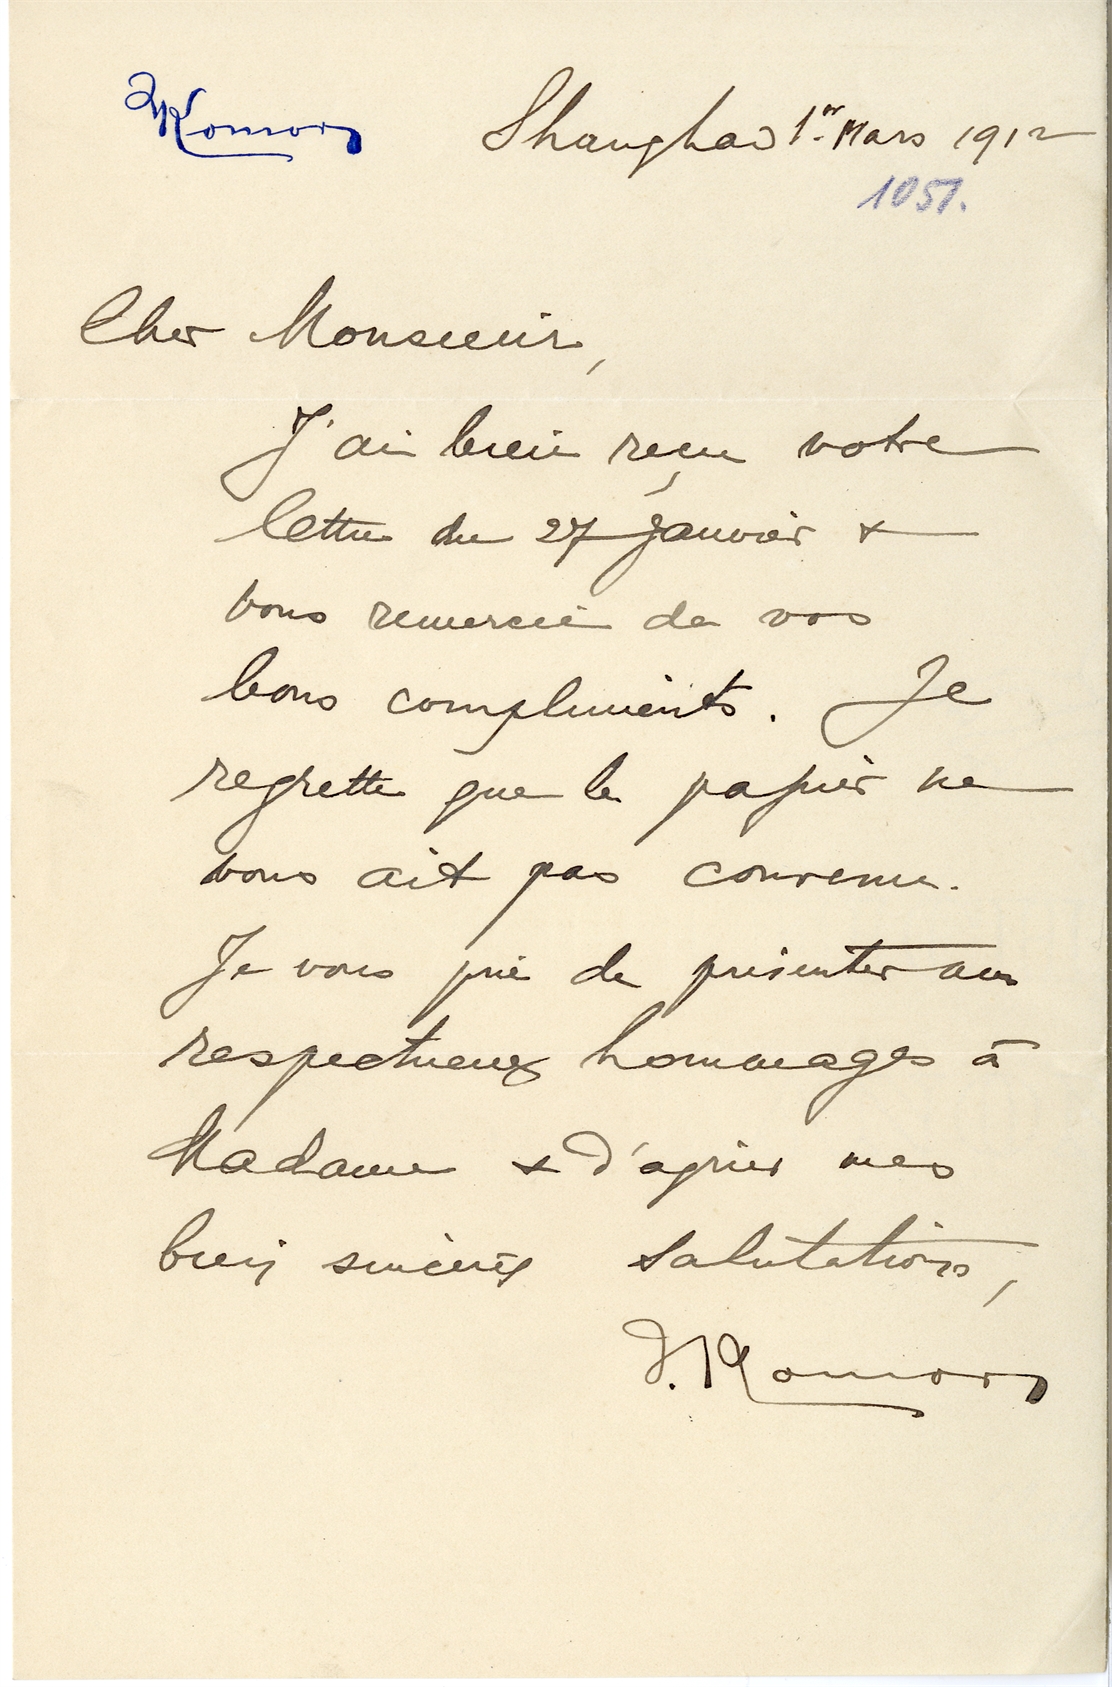 Komor
Shanghai 1er Mars 1912
1051.
Cher Monsieur,
J'ai bien reçu votre
lettre du 27 janvier &
vous remercie de vos
bons compliments. Je
regrette que le papier ne
vous ait pas convenu.
Je vous prie de présenter mes
respectueux hommages à
Madame & d'agréer mes
bien sincères salutations,
I. Komor